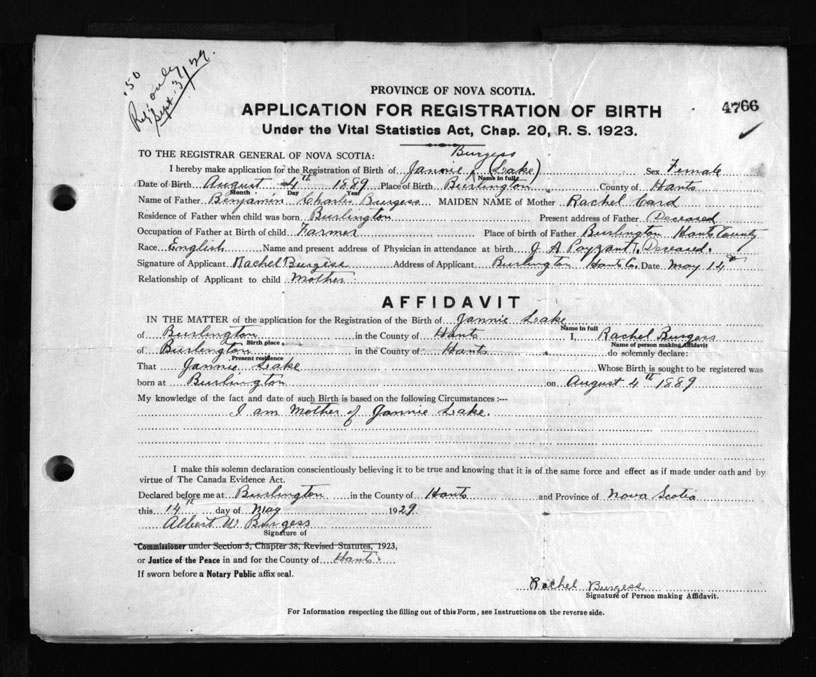 .50
Reg. only
Sept. 3/29.
PROVINCE OF NOVA SCOTIA.
APPLICATION FOR REGISTRATION OF BIRTH
4766
Under the Vital Statistics Act, Chap. 20, R. S. 1923.
TO THE REGISTRAR GENERAL OF NOVA SCOTIA:
Burgess
I hereby make application for the Registration of Birth of Jannie (Lake) Sex Female
Name in full
Date of Birth August 4th 1889 Place of Birth Burlington County of Hants
Month Day Year
Name of Father Benjamin Charles Burgess MAIDEN NAME of Mother Rachel Card
Residence of Father when child was born Burlington Present address of Father Deceased
Occupation of Father at Birth of child Farmer Place of birth of Father Burlington Hants County
Race English Name and present address of Physician in attendance at birth J. A. Payzant, Deceased.
Signature of Applicant Rachel Burgess Address of Applicant Burlington Hants Co. Date May 14th
Relationship of Applicant to child Mother
AFFIDAVIT
IN THE MATTER of the application for the Registration of the Birth of Jannie Lake
Name in full
of Burlington in the County of Hants I, Rachel Burgess
Birth place Name of person making Affidavit
of Burlington in the County of Hants do solemnly declare:
Present residence
That Jannie Lake Whose Birth is sought to be registered was
born at Burlington on August 4th 1889
My knowledge of the fact and date of such Birth is based on the following Circumstances :—
I am Mother of Jannie Lake.
I make this solemn declaration conscientiously believing it to be true and knowing that it is of the same force and effect as if made under oath and by
virtue of The Canada Evidence Act.
Declared before me at Burlington in the County of Hants and Province of Nova Scotia
this 14th day of May 1929
Albert W Burgess
Signature of
Commissioner under Section 5, Chapter 38, Revised Statutes, 1923,
or Justice of the Peace in and for the County of Hants
If sworn before a Notary Public affix seal.
Rachel Burgess
Signature of Person making Affidavit.
For Information respecting the filling out of this Form, see Instructions on the reverse side.